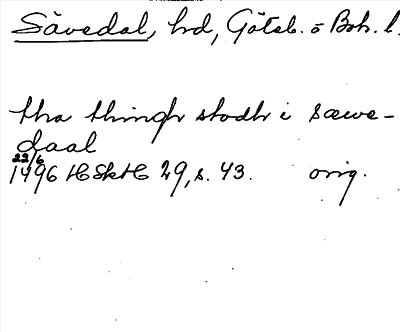 Sävedal, hd, Göteb. o Boh. l.
tha thingh stodh i sæwe-
daal
22/6
1496 HSkH 29, s. 43. orig.